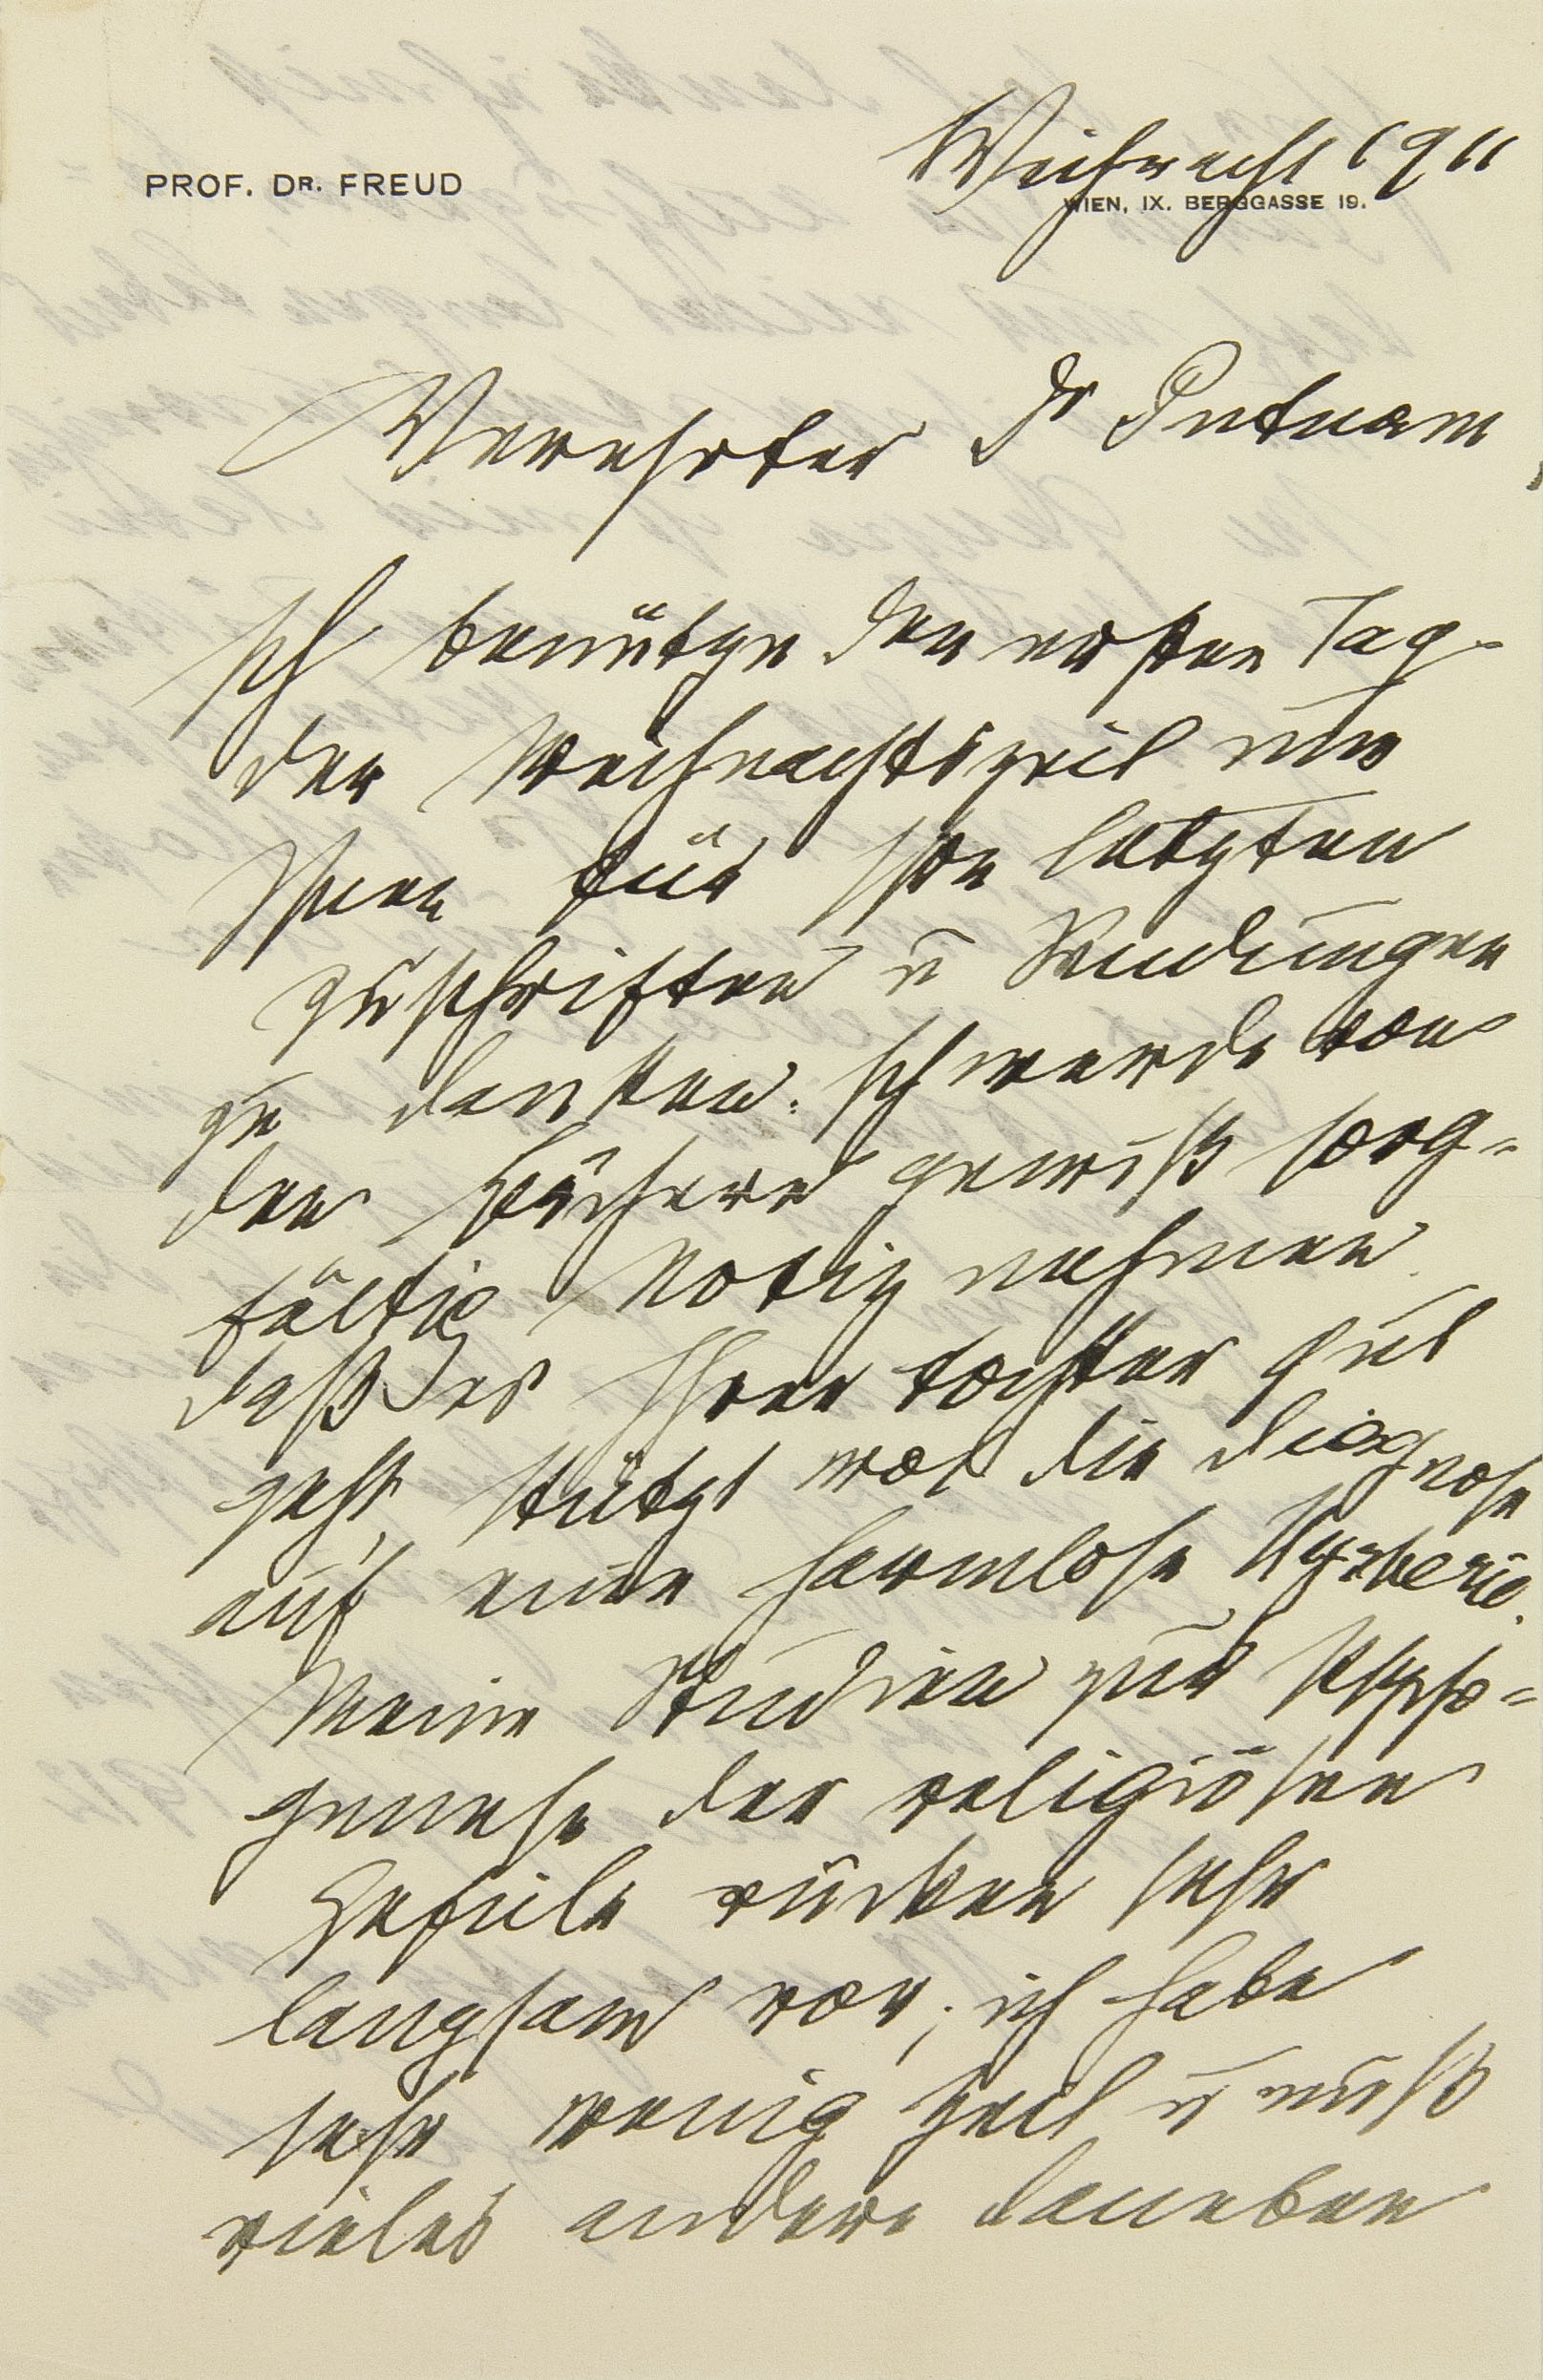 PROF. DR. FREUD
Weihnacht 1911
WIEN, IX. BERGGASSE 19.
Verehrter Dr Putnam,
Ich benütze den ersten Tag
der Weihnachtszeit um
Ihnen für Ihre letzten
Zuschriften u Sendungen
zu danken. Ich werde von
den Büchern gewiß sorg=
fältig Notiz nehmen.
Daß es Ihrer Tochter gut
geht, stützt wol die Diagnose
auf eine harmlose Hysterie.
Meine Studien zur Psycho=
genese der religiösen
Gefüle rücken sehr
langsam vor; ich habe
sehr wenig Zeit u muß
vieles andere daneben